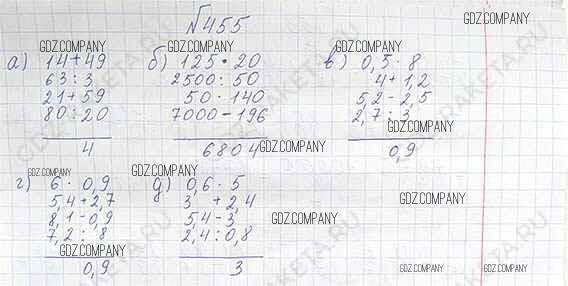 №455
GDZ.COMPANY
GDZ.COMPANY GDZ.COMPANY GDZ.COMPANY
а) 14+49
63:3
21+59
80:20
4
б) 125·20
2500:50
50·140
7000-196
6804
GDZ.COMPANY
в) 0,5·8
4+1,2
5,2-2,5
2,7:3
GDZ.COMPANY
0,9
GDZ.COMPANY GDZ.COMPANY
г) 6·0,9
5,4+2,7
8,1-0,9
7,2:8
GDZ.COMPANY
0,9
д) 0,6·5
3+2,4
5,4-3
2,4:0,8
3
GDZ.COMPANY
GDZ.COMPANY
GDZ.COMPANY GDZ.COMPANY